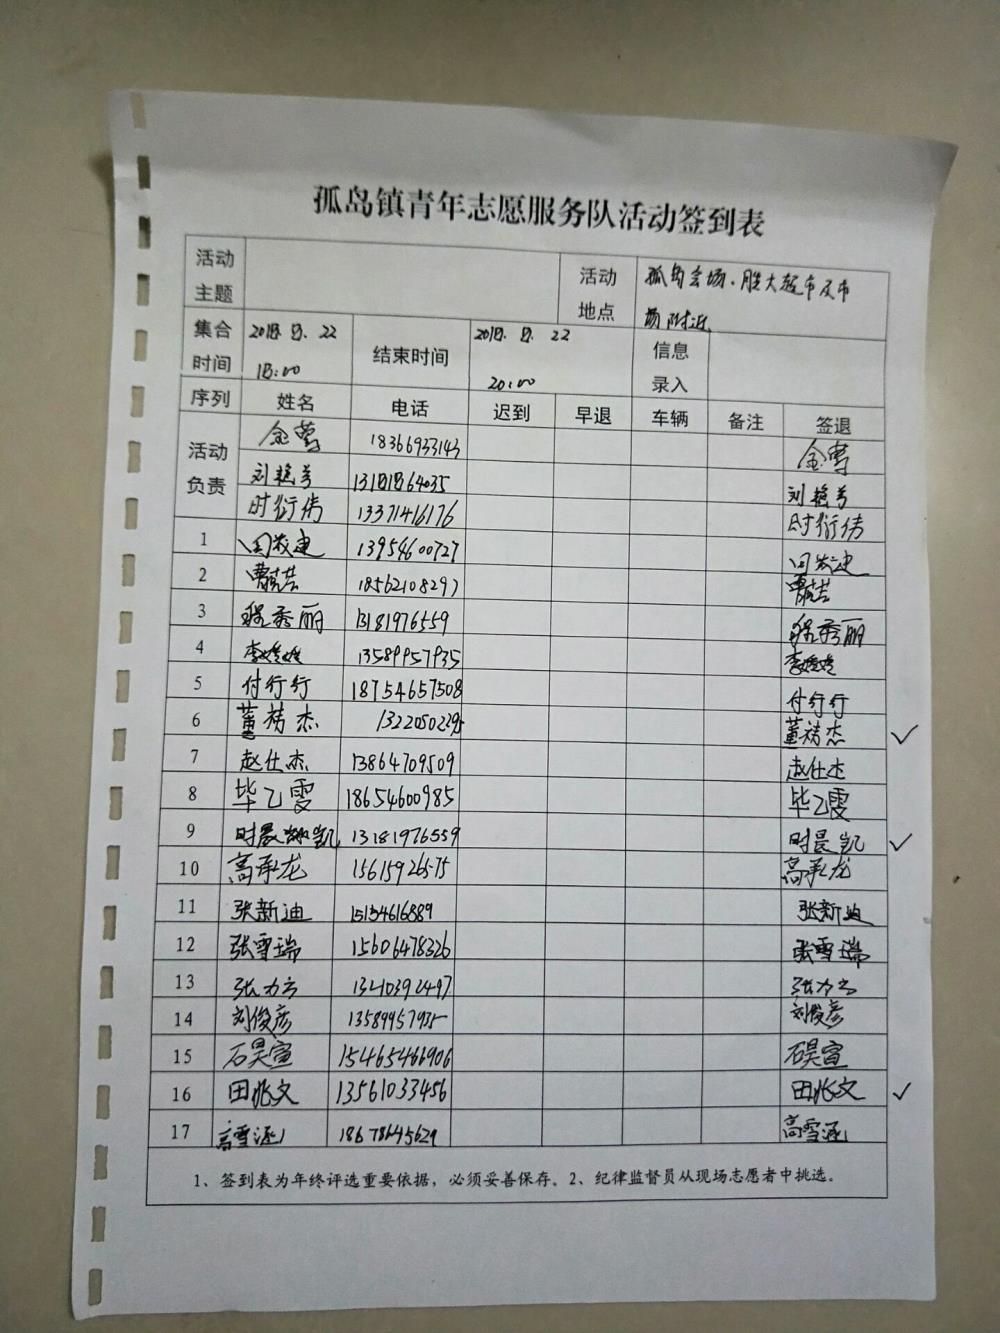 孤岛镇青年志愿服务队活动签到表
活动主题 活动地点 孤岛会场、胜大超市及市场附近
集合时间 18:00 结束时间 20:00 信息录入
序列 姓名 电话 迟到 早退 车辆 备注 签退
活动负责 金莺 18366933143 金莺
刘艳芳 13181864035 刘艳芳
时衍伟 13371416176 时衍伟
1 闫发建 13954600727 闫发建
2 18562108297
3 程秀丽 13181976559 程秀丽
4 李婷婷 13589957935 李婷婷
5 付行行 18754657508 付行行
6 董祷杰 董祷杰
7 赵仕杰 13864709509 赵仕杰
8 毕乙雯 18654600985 毕乙雯
9 13181976559 时晨凯
10 高承龙 15615926575 高承龙
11 张新迪 15134616889 张新迪
12 张雪瑞 15606478326 张雪瑞
13 张力方 张力方
14 刘俊彦 13589957935 刘俊彦
15 石昊宣 15465466906 石昊宣
16 田兆文 13561033456 田兆文
17 高雪涵 18678645629 高雪涵
1、签到表为年终评选重要依据，必须妥善保存。2、纪律监督员从现场志愿者中挑选。